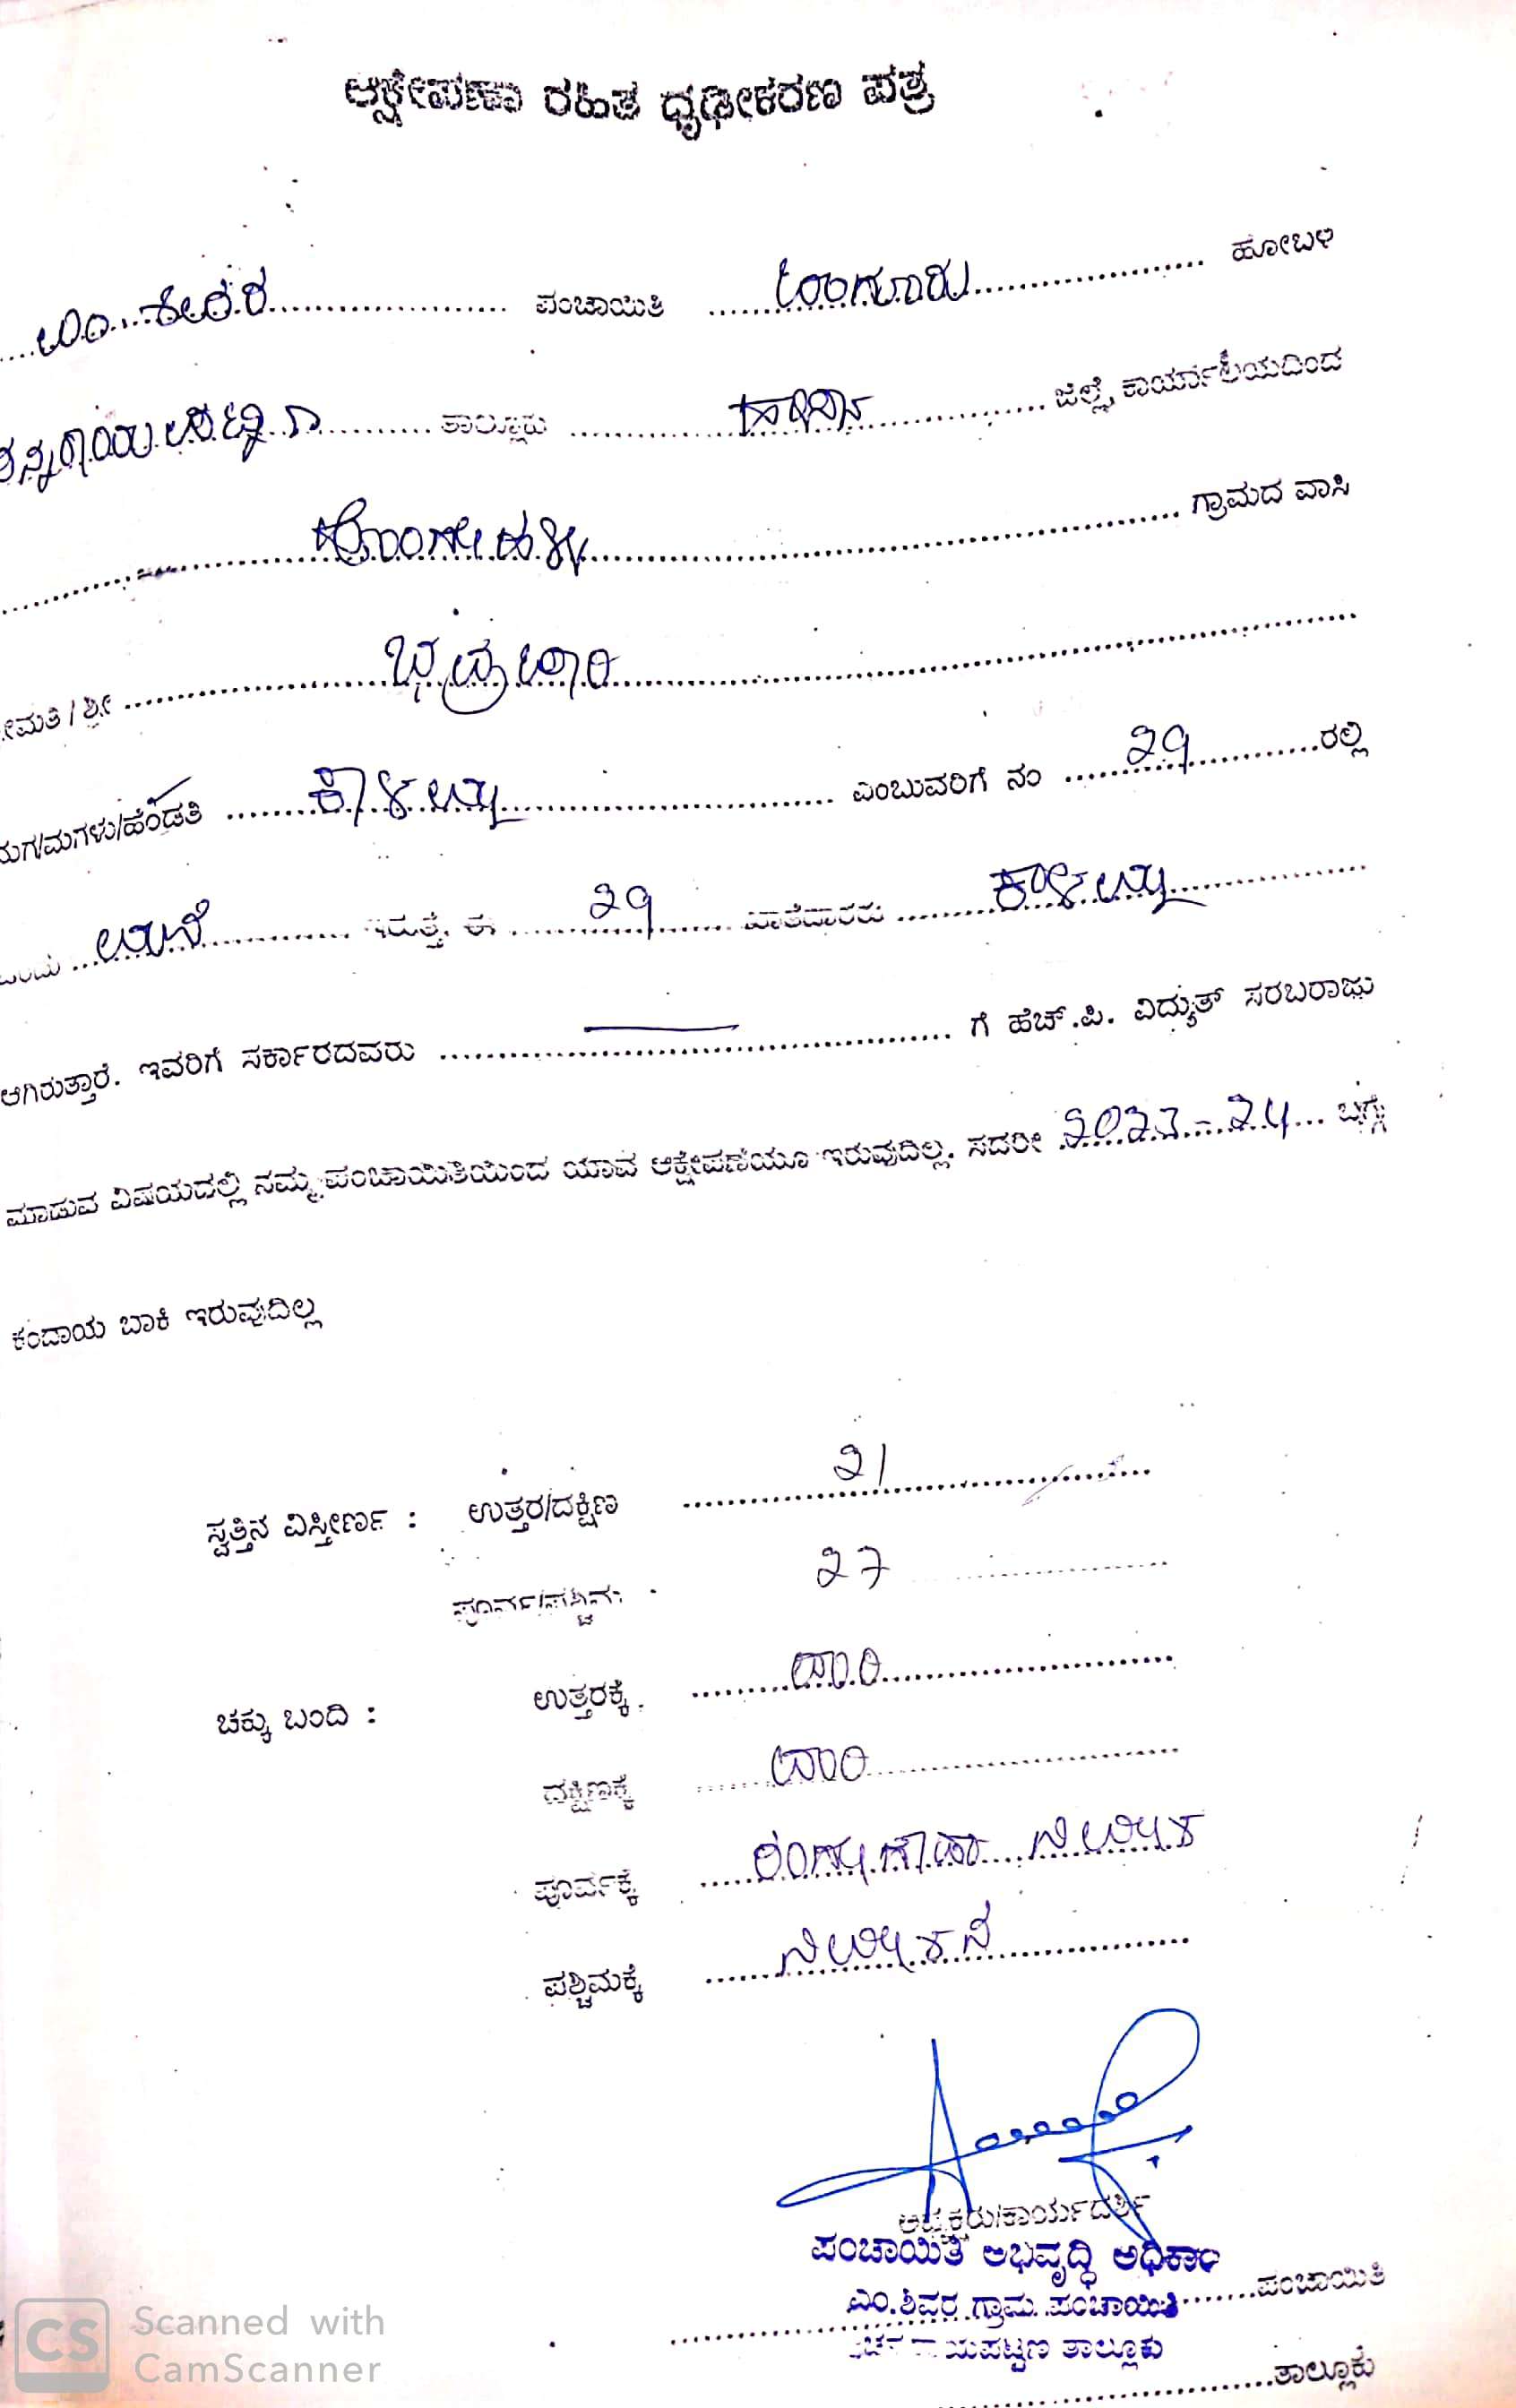 ಆಕ್ಷೇಪಣಾ ರಹಿತ ಧೃಢೀಕರಣ ಪತ್ರ
ಎಂ.ಶಿವರ ಪಂಚಾಯಿತಿ ಹೋಬಳಿ
ತಾಲ್ಲೂಕು ಹಾಸನ ಜಿಲ್ಲೆ, ಕಾರ್ಯಾಲಯದಿಂದ
ಗ್ರಾಮದ ವಾಸಿ
ಶ್ರೀಮತಿ / ಶ್ರೀ
ಮಗ/ಮಗಳು/ಹೆಂಡತಿ ಕಾಳಯ್ಯ ಎಂಬುವರಿಗೆ ನಂ 29 ರಲ್ಲಿ
ಒಂದು ಮನೆ ಇರುತ್ತೆ. ಈ 29 ಖಾತೆದಾರರು ಕಾಳಯ್ಯ
ಆಗಿರುತ್ತಾರೆ. ಇವರಿಗೆ ಸರ್ಕಾರದವರು ಗೆ ಹೆಚ್.ಪಿ. ವಿದ್ಯುತ್ ಸರಬರಾಜು
ಮಾಡುವ ವಿಷಯದಲ್ಲಿ ನಮ್ಮ ಪಂಚಾಯಿತಿಯಿಂದ ಯಾವ ಆಕ್ಷೇಪಣೆಯೂ ಇರುವುದಿಲ್ಲ. ಸದರೀ 2023-24 ಬಗ್ಗೆ
ಕಂದಾಯ ಬಾಕಿ ಇರುವುದಿಲ್ಲ
ಸ್ವತ್ತಿನ ವಿಸ್ತೀರ್ಣ : ಉತ್ತರ/ದಕ್ಷಿಣ 21
ಪೂರ್ವ/ಪಶ್ಚಿಮ 27
ಚಕ್ಕು ಬಂದಿ : ಉತ್ತರಕ್ಕೆ ದಾರಿ
ದಕ್ಷಿಣಕ್ಕೆ ದಾರಿ
ಪೂರ್ವಕ್ಕೆ
ಪಶ್ಚಿಮಕ್ಕೆ
ಅಧ್ಯಕ್ಷರು/ಕಾರ್ಯದರ್ಶಿ
ಪಂಚಾಯಿತಿ ಅಭಿವೃದ್ಧಿ ಅಧಿಕಾರಿ
ಎಂ.ಶಿವರ ಗ್ರಾಮ ಪಂಚಾಯಿತಿ ಪಂಚಾಯಿತಿ
ತಾಲ್ಲೂಕು
ತಾಲ್ಲೂಕು
CS Scanned with
CamScanner